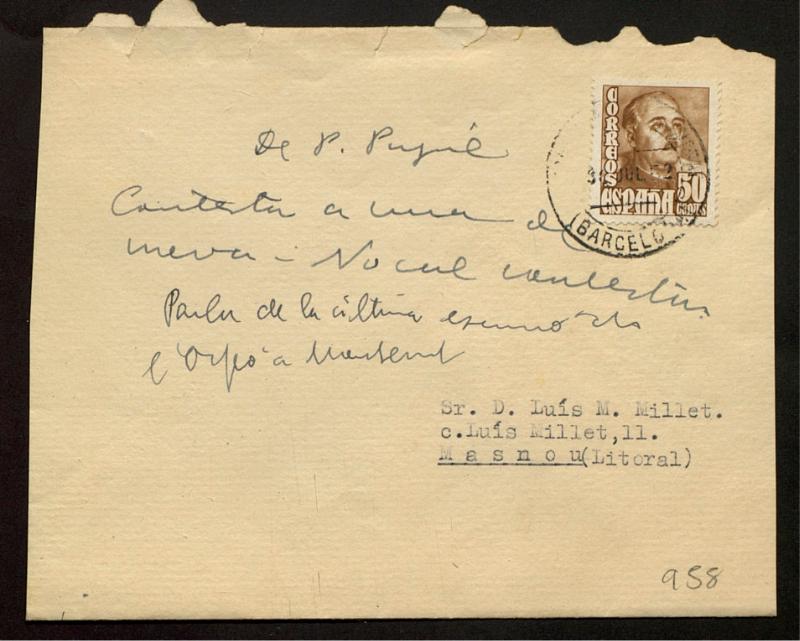 CORREOS
ESPAÑA
50
CTMOS
JUL
(BARCELO
De P. Pujol
Contesta a una de
meva - No cal contestar.
Parla de la última excursió de
l'Orfeó a Montserrat
Sr. D. Luís M. Millet.
c.Luís Millet,11.
Masnou(Litoral)
958